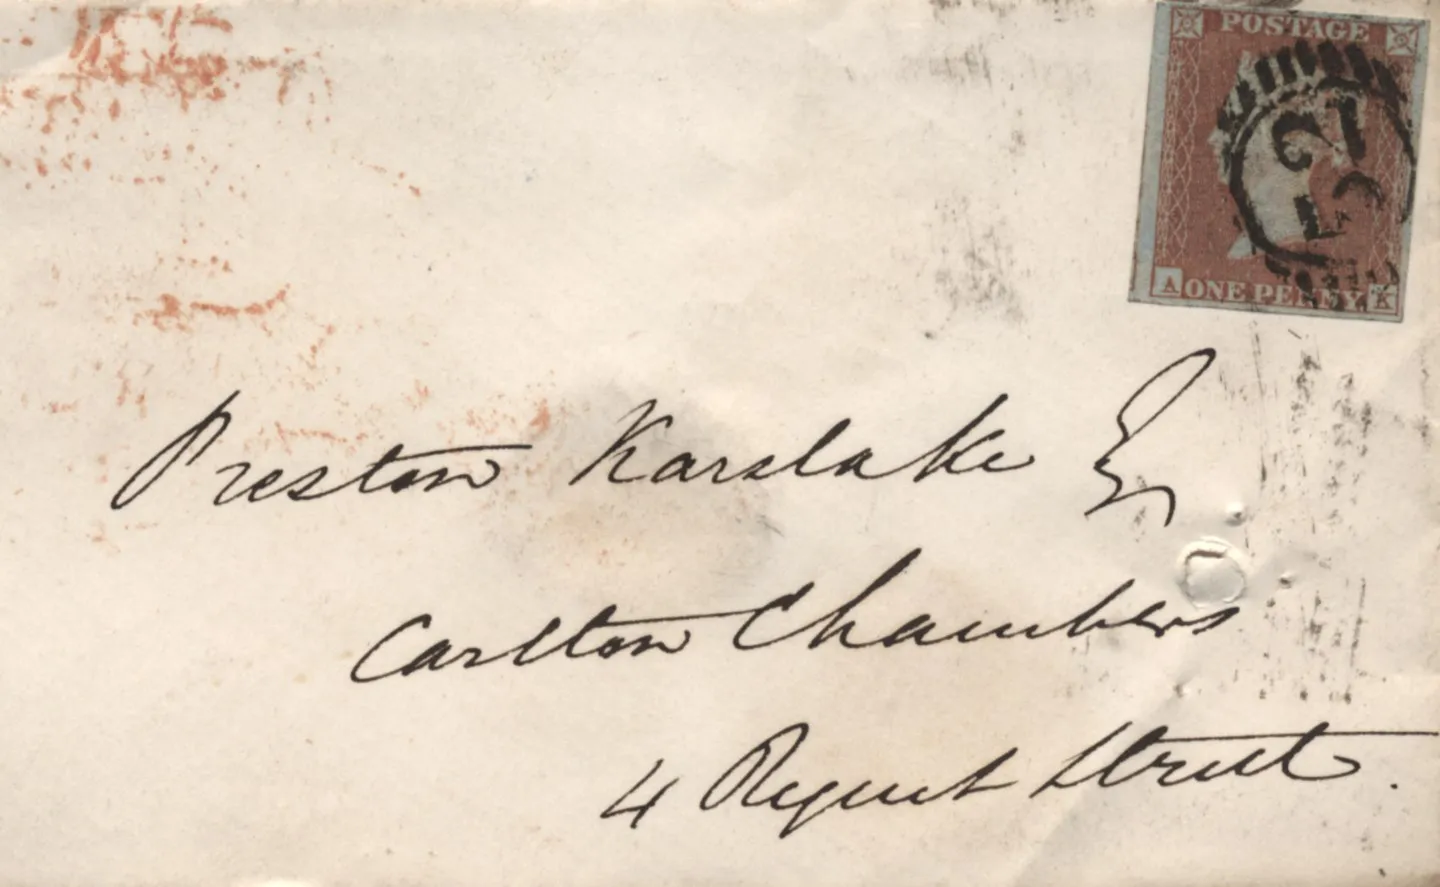 POSTAGE
52
A ONE PENNY K
Preston Karslake Esq
Carlton Chambers
4 Regent Street.